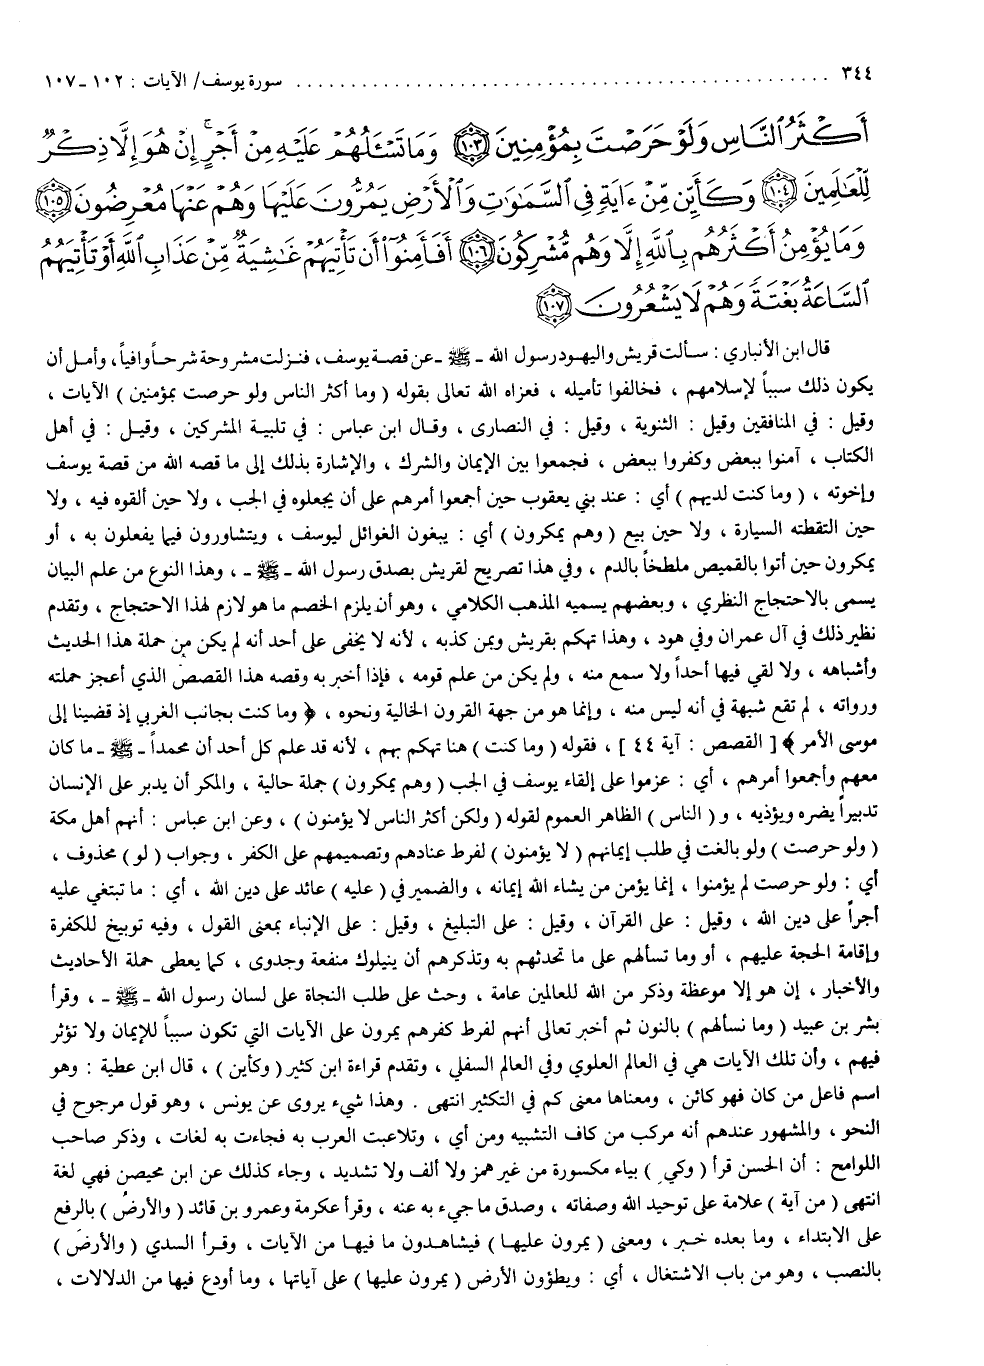 ٣٤٤ ........................................ سورة يوسف/ الآيات : ١٠٢ - ١٠٧
أَكْثَرُ ٱلنَّاسِ وَلَوْ حَرَصْتَ بِمُؤْمِنِينَ ﴿١٠٣﴾ وَمَا تَسْـَٔلُهُمْ عَلَيْهِ مِنْ أَجْرٍ ۚ إِنْ هُوَ إِلَّا ذِكْرٌ
لِّلْعَـٰلَمِينَ ﴿١٠٤﴾ وَكَأَيِّن مِّنْ ءَايَةٍ فِى ٱلسَّمَـٰوَٰتِ وَٱلْأَرْضِ يَمُرُّونَ عَلَيْهَا وَهُمْ عَنْهَا مُعْرِضُونَ ﴿١٠٥﴾
وَمَا يُؤْمِنُ أَكْثَرُهُم بِٱللَّهِ إِلَّا وَهُم مُّشْرِكُونَ ﴿١٠٦﴾ أَفَأَمِنُوٓا۟ أَن تَأْتِيَهُمْ غَـٰشِيَةٌ مِّنْ عَذَابِ ٱللَّهِ أَوْ تَأْتِيَهُمُ
ٱلسَّاعَةُ بَغْتَةً وَهُمْ لَا يَشْعُرُونَ ﴿١٠٧﴾
قال ابن الأنباري : سألت قريش واليهود رسول الله ـ ﷺ ـ عن قصة يوسف ، فنزلت مشروحة شرحاً وافياً ، وأمل أن
يكون ذلك سبباً لإسلامهم ، فخالفوا تأميله ، فعزاه الله تعالى بقوله ( وما أكثر الناس ولو حرصت بمؤمنين ) الآيات ،
وقيل : في المنافقين وقيل : الثنوية ، وقيل : في النصارى ، وقال ابن عباس : في تلبية المشركين ، وقيل : في أهل
الكتاب ، آمنوا ببعض وكفروا ببعض ، فجمعوا بين الإيمان والشرك ، والإشارة بذلك إلى ما قصه الله من قصة يوسف
وإخوته ، ( وما كنت لديهم ) أي : عند بني يعقوب حين أجمعوا أمرهم على أن يجعلوه في الجب ، ولا حين ألقوه فيه ، ولا
حين التقطته السيارة ، ولا حين بيع ( وهم يمكرون ) أي : يبغون الغوائل ليوسف ، ويتشاورون فيما يفعلون به ، أو
يمكرون حين أتوا بالقميص ملطخاً بالدم ، وفي هذا تصريح لقريش بصدق رسول الله ـ ﷺ ـ ، وهذا النوع من علم البيان
يسمى بالاحتجاج النظري ، وبعضهم يسميه المذهب الكلامي ، وهو أن يلزم الخصم ما هو لازم لهذا الاحتجاج ، وتقدم
نظير ذلك في آل عمران وفي هود ، وهذا تهكم بقريش وبمن كذبه ، لأنه لا يخفى على أحد أنه لم يكن من حملة هذا الحديث
وأشباهه ، ولا لقي فيها أحداً ولا سمع منه ، ولم يكن من علم قومه ، فإذا أخبر به وقصه هذا القصص الذي أعجز حملته
ورواته ، لم تقع شبهة في أنه ليس منه ، وإنما هو من جهة القرون الخالية ونحوه ، ﴿ وما كنت بجانب الغربي إذ قضينا إلى
موسى الأمر ﴾ [ القصص : آية ٤٤ ] ، فقوله ( وما كنت ) هنا تهكم بهم ، لأنه قد علم كل أحد أن محمداً ـ ﷺ ـ ما كان
معهم وأجمعوا أمرهم ، أي : عزموا على إلقاء يوسف في الجب ( وهم يمكرون ) جملة حالية ، والمكر أن يدبر على الإنسان
تدبيراً يضره ويؤذيه ، و ( الناس ) الظاهر العموم لقوله ( ولكن أكثر الناس لا يؤمنون ) ، وعن ابن عباس : أنهم أهل مكة
( ولو حرصت ) ولو بالغت في طلب إيمانهم ( لا يؤمنون ) لفرط عنادهم وتصميمهم على الكفر ، وجواب ( لو ) محذوف ،
أي : ولو حرصت لم يؤمنوا ، إنما يؤمن من يشاء الله إيمانه ، والضمير في ( عليه ) عائد على دين الله ، أي : ما تبتغي عليه
أجراً على دين الله ، وقيل : على القرآن ، وقيل : على التبليغ ، وقيل : على الإنباء بمعنى القول ، وفيه توبيخ للكفرة
وإقامة الحجة عليهم ، أو وما تسألهم على ما تحدثهم به وتذكرهم أن ينيلوك منفعة وجدوى ، كما يعطى حملة الأحاديث
والأخبار ، إن هو إلا موعظة وذكر من الله للعالمين عامة ، وحث على طلب النجاة على لسان رسول الله ـ ﷺ ـ ، وقرأ
بشر بن عبيد ( وما نسألهم ) بالنون ثم أخبر تعالى أنهم لفرط كفرهم يمرون على الآيات التي تكون سبباً للإيمان ولا تؤثر
فيهم ، وأن تلك الآيات هي في العالم العلوي وفي العالم السفلي ، وتقدم قراءة ابن كثير ( وكأين ) ، قال ابن عطية : وهو
اسم فاعل من كان فهو كائن ، ومعناها معنى كم في التكثير انتهى . وهذا شيء يروى عن يونس ، وهو قول مرجوح في
النحو ، والمشهور عندهم أنه مركب من كاف التشبيه ومن أي ، وتلاعبت العرب به فجاءت به لغات ، وذكر صاحب
اللوامح : أن الحسن قرأ ( وكي ) بياء مكسورة من غير همز ولا ألف ولا تشديد ، وجاء كذلك عن ابن محيصن فهي لغة
انتهى ( من آية ) علامة على توحيد الله وصفاته ، وصدق ما جيء به عنه ، وقرأ عكرمة وعمرو بن قائد ( والأرضُ ) بالرفع
على الابتداء ، وما بعده خبر ، ومعنى ( يمرون عليها ) فيشاهدون ما فيها من الآيات ، وقرأ السدي ( والأرضَ )
بالنصب ، وهو من باب الاشتغال ، أي : ويطؤون الأرض ( يمرون عليها ) على آياتها ، وما أودع فيها من الدلالات ،